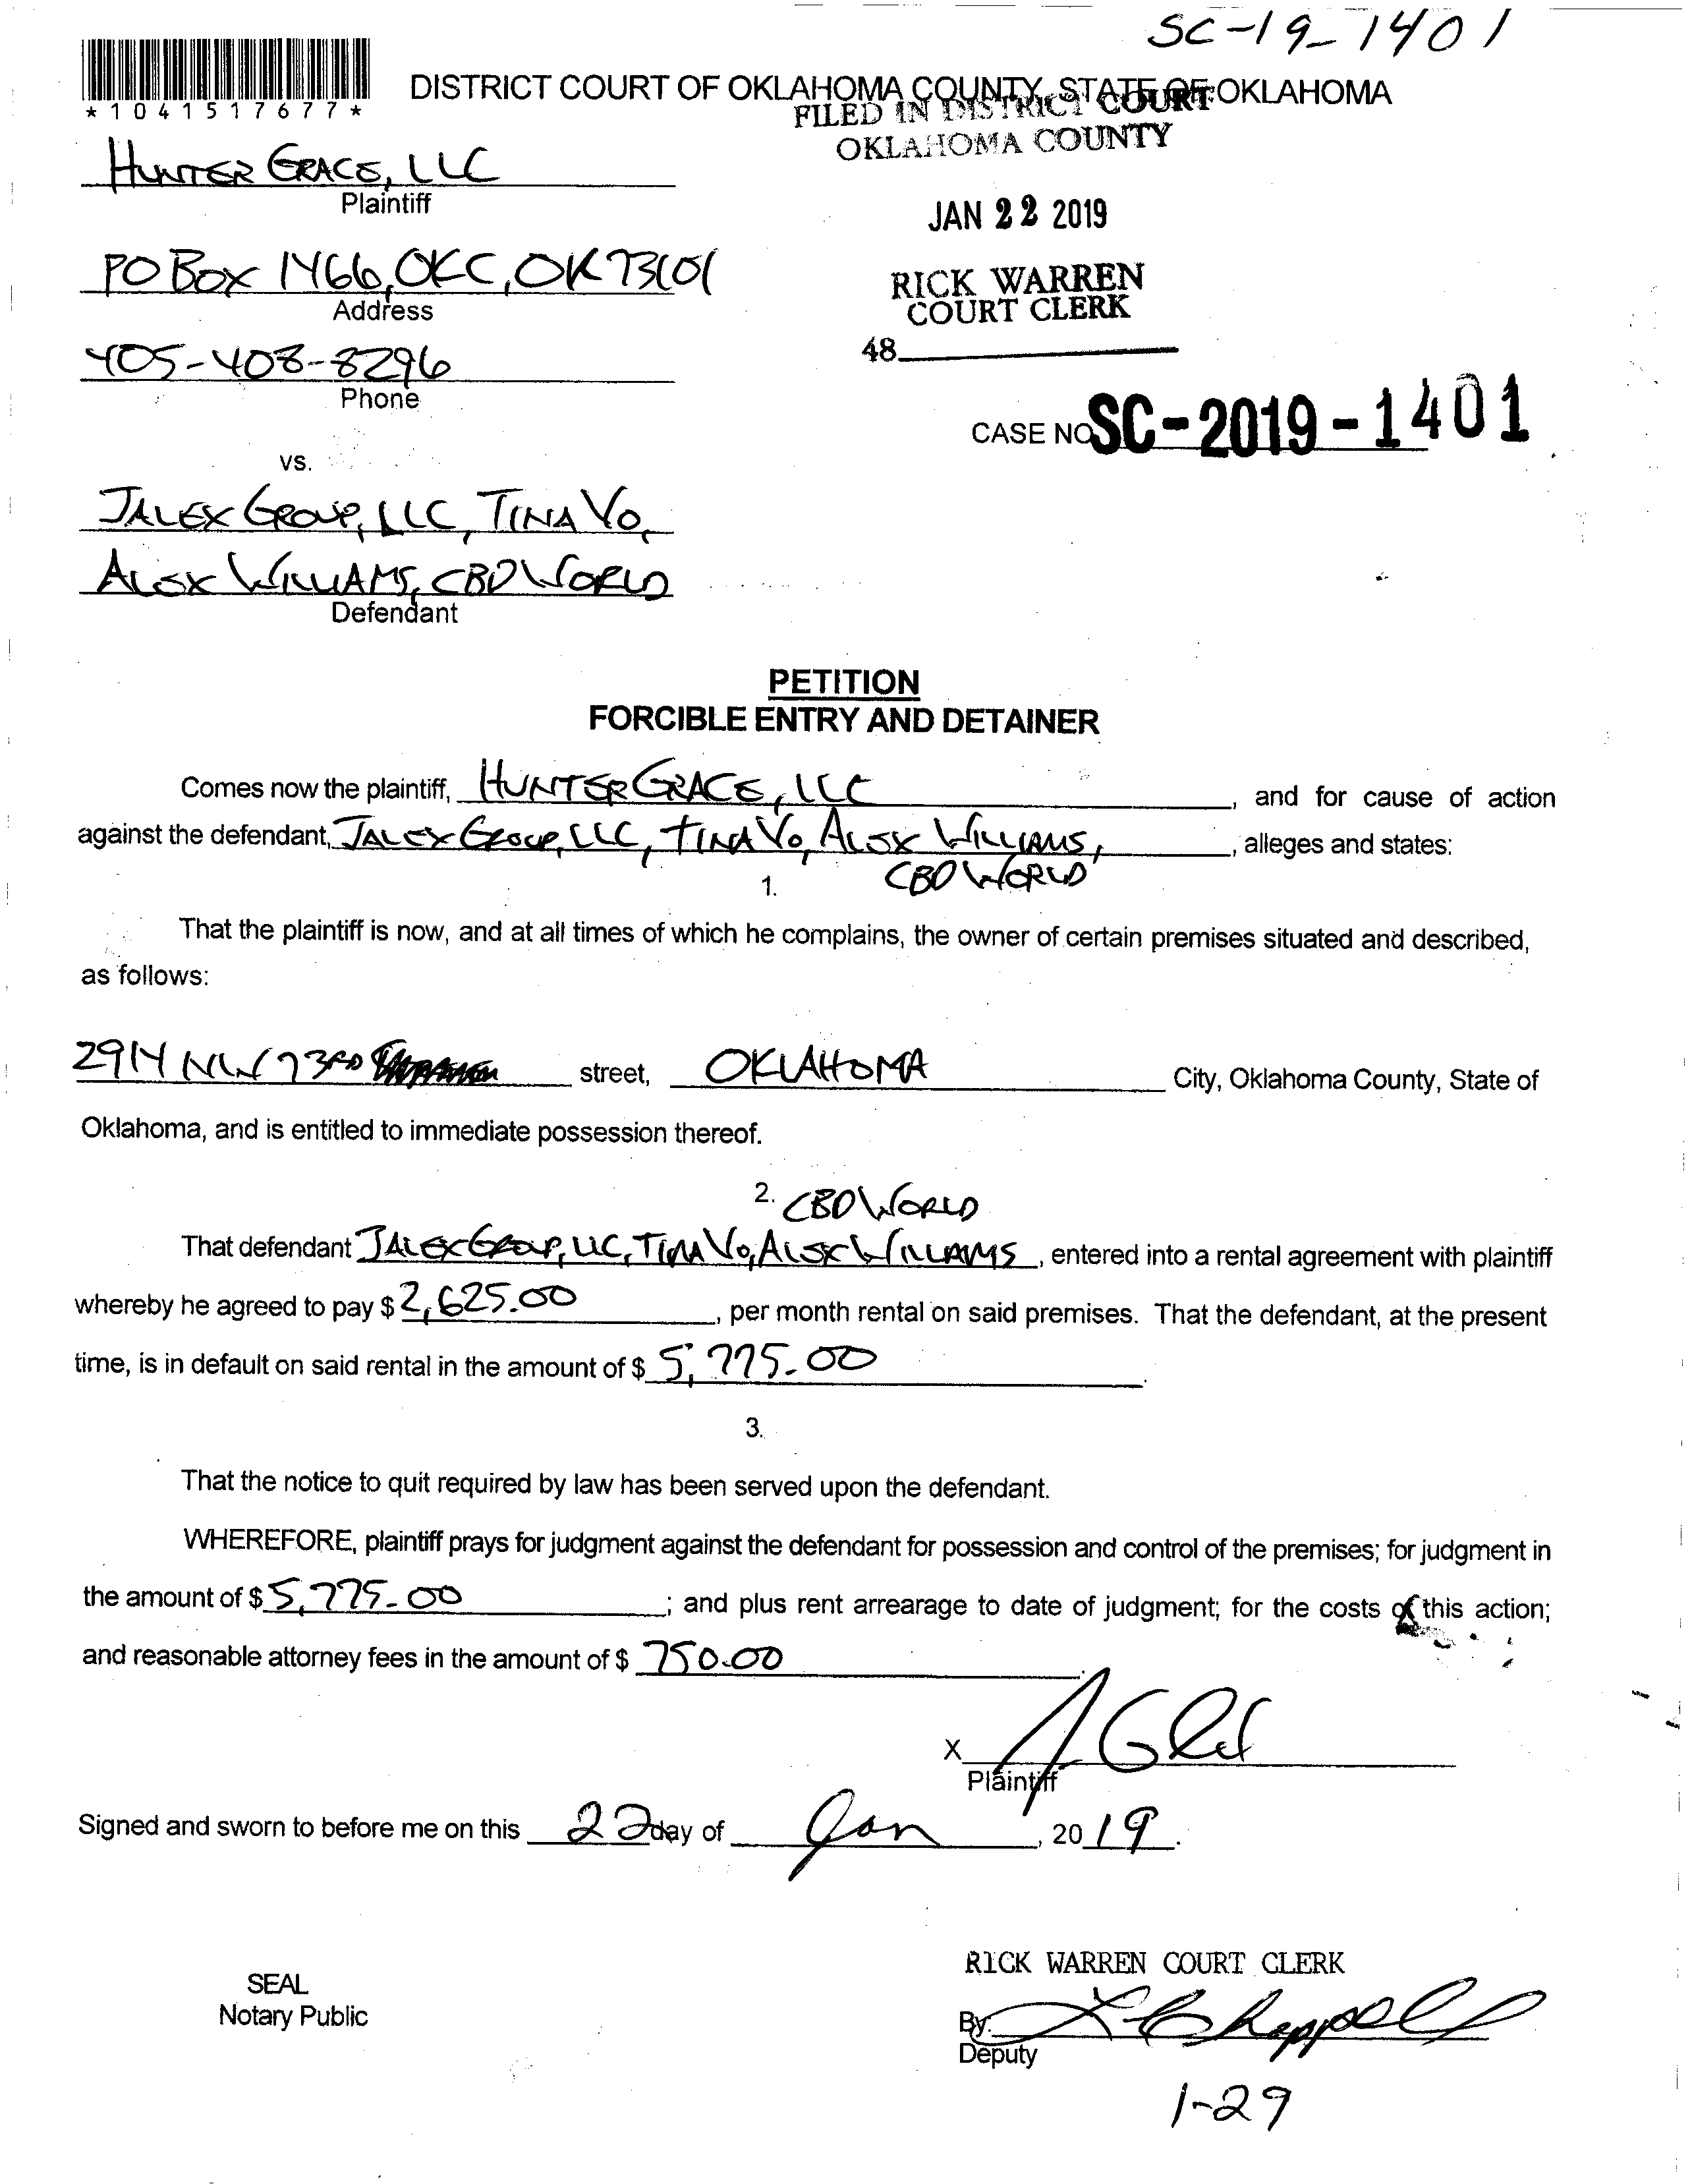 SC-19-1401
*1041517677*
DISTRICT COURT OF OKLAHOMA COUNTY, STATE OF OKLAHOMA
FILED IN DISTRICT COURT
OKLAHOMA COUNTY
HUNTER GRACE, LLC
Plaintiff
JAN 22 2019
PO BOX 1466, OKC, OK 73101
Address
RICK WARREN
COURT CLERK
405-408-8296
Phone
48
CASE NO. SC-2019-1401
vs.
JALEX GROUP, LLC, TINA VO,
ALEX WILLIAMS, CBD WORLD
Defendant
PETITION
FORCIBLE ENTRY AND DETAINER
Comes now the plaintiff, HUNTER GRACE, LLC, and for cause of action
against the defendant, JALEX GROUP, LLC, TINA VO, ALEX WILLIAMS, , alleges and states:
CBD WORLD
1.
That the plaintiff is now, and at all times of which he complains, the owner of certain premises situated and described,
as follows:
2914 NW 73RD street, OKLAHOMA City, Oklahoma County, State of
Oklahoma, and is entitled to immediate possession thereof.
2. CBD WORLD
That defendant JALEX GROUP, LLC, TINA VO, ALEX WILLIAMS, entered into a rental agreement with plaintiff
whereby he agreed to pay $ 2,625.00, per month rental on said premises. That the defendant, at the present
time, is in default on said rental in the amount of $ 5,775.00.
3.
That the notice to quit required by law has been served upon the defendant.
WHEREFORE, plaintiff prays for judgment against the defendant for possession and control of the premises; for judgment in
the amount of $ 5,775.00; and plus rent arrearage to date of judgment; for the costs of this action;
and reasonable attorney fees in the amount of $ 750.00.
X
Plaintiff
Signed and sworn to before me on this 22 day of Jan, 2019.
RICK WARREN COURT CLERK
SEAL
Notary Public
By: Chappell
Deputy
1-29